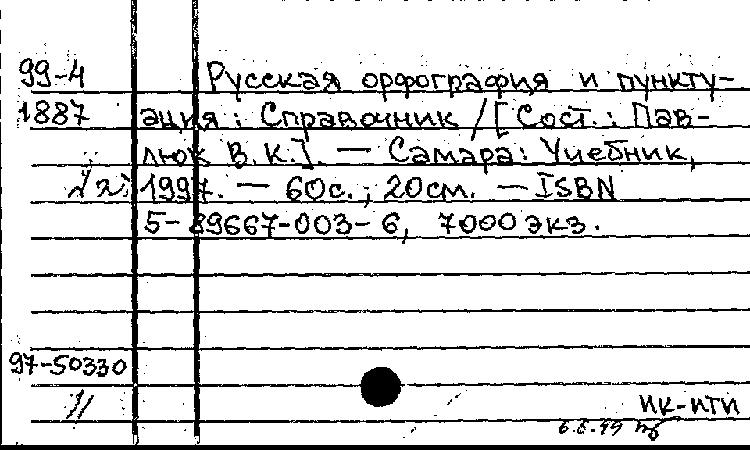 99-4 Русская орфография и пункту-
1887 ация: Справочник / [Сост.: Пав-
люк В.К.]. — Самара: Учебник,
1997. — 60с.; 20см. — ISBN
5-89667-003-6, 7000 экз.
97-50330
ИК-НТИ